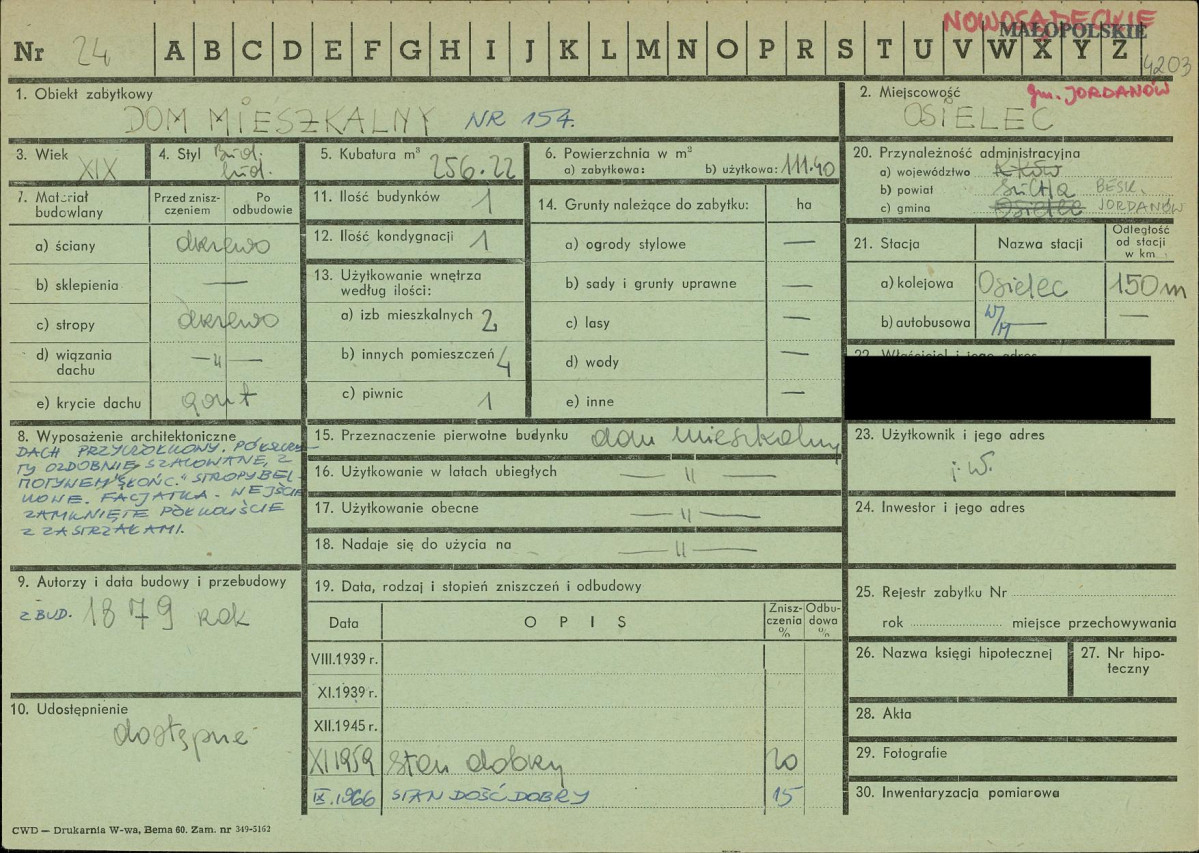 NOWOSĄDECKIE
MAŁOPOLSKIE
Nr 24 A B C D E F G H I J K L M N O P R S T U V W X Y Z 4203
1. Obiekt zabytkowy
DOM MIESZKALNY NR 154.
2. Miejscowość gm. JORDANÓW
OSIELEC
3. Wiek
XIX
4. Styl Bud.
lud.
5. Kubatura m³
256.22
6. Powierzchnia w m²
a) zabytkowa: b) użytkowa: 111.40
7. Materiał budowlany
Przed zniszczeniem
Po odbudowie
a) ściany drzewo
b) sklepienia —
c) stropy drzewo
d) wiązania dachu —〃—
e) krycie dachu gont
8. Wyposażenie architektoniczne
DACH PRZYCZÓŁKOWY. PÓŁSZCZY-
TY OZDOBNIE SZALOWANE, Z
MOTYWEM "SŁOŃC." STROPY BEL-
KOWE. FACJATKA. WEJŚCIE
ZAMKNIĘTE PÓŁKOLIŚCIE
Z ZASTRZAŁAMI.
9. Autorzy i data budowy i przebudowy
ZBUD. 1879 rok
10. Udostępnienie
dostępne
11. Ilość budynków 1
12. Ilość kondygnacji 1
13. Użytkowanie wnętrza
według ilości:
a) izb mieszkalnych 2
b) innych pomieszczeń 4
c) piwnic 1
14. Grunty należące do zabytku: ha
a) ogrody stylowe —
b) sady i grunty uprawne —
c) lasy —
d) wody —
e) inne —
15. Przeznaczenie pierwotne budynku dom mieszkalny
16. Użytkowanie w latach ubiegłych —〃—
17. Użytkowanie obecne —〃—
18. Nadaje się do użycia na —〃—
19. Data, rodzaj i stopień zniszczeń i odbudowy
Data
OPIS
Zniszczenia %
Odbudowa %
VIII.1939 r.
XI.1939 r.
XII.1945 r.
XI 1959 Stan dobry 20
IX.1966 STAN DOŚĆ DOBRY 15
20. Przynależność administracyjna
a) województwo Kraków
b) powiat Sucha BESK.
c) gmina Osielec JORDANÓW
21. Stacja
Nazwa stacji
Odległość od stacji w km
a) kolejowa Osielec 150 m
b) autobusowa W/M — —
22. Właściciel i jego adres
23. Użytkownik i jego adres
j.w.
24. Inwestor i jego adres
25. Rejestr zabytku Nr
rok miejsce przechowywania
26. Nazwa księgi hipotecznej
27. Nr hipoteczny
28. Akta
29. Fotografie
30. Inwentaryzacja pomiarowa
CWD — Drukarnia W-wa, Bema 60. Zam. nr 349-5162